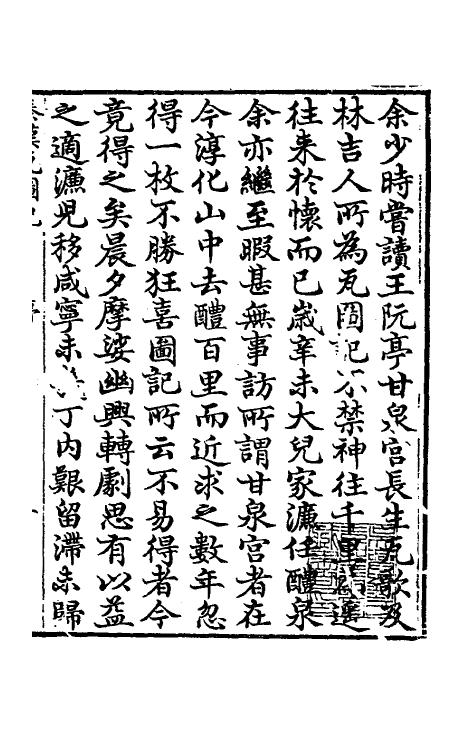 余少時嘗讀王阮亭甘泉宮長生瓦歌及
林吉人所為瓦圖記不禁神往千里遙
往來於懷而已歲辛未大兒家濂任醴泉
余亦繼至暇甚無事訪所謂甘泉宮者在
今淳化山中去醴百里而近求之數年忽
得一枚不勝狂喜圖記所云不易得者今
竟得之矣晨夕摩娑幽興轉劇思有以益
之適濂兒移咸寧未 丁內艱留滯未歸
秦漢瓦圖記 序